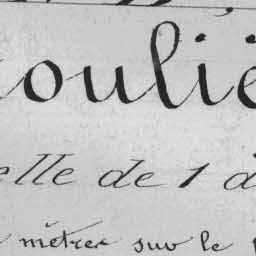 oulië
elle de 1 à
mètres sur le